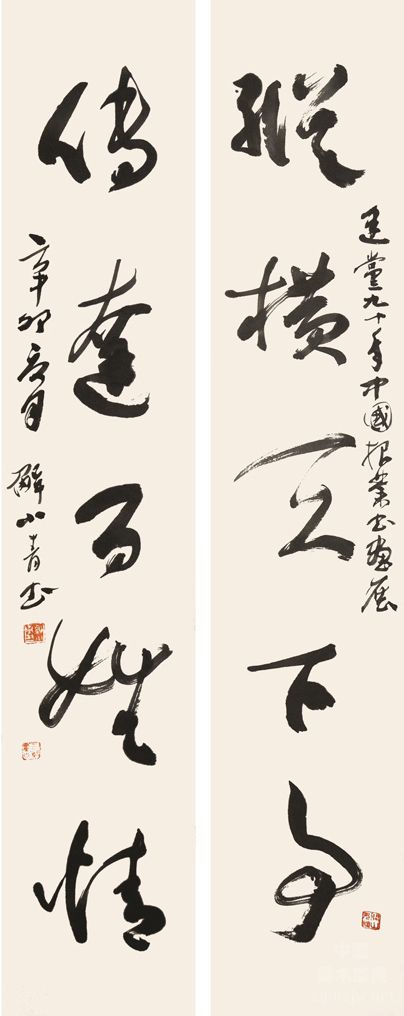 縱橫天下事
建黨九十年中國報業書畫展
傳達百姓情
辛卯五月 解小青書